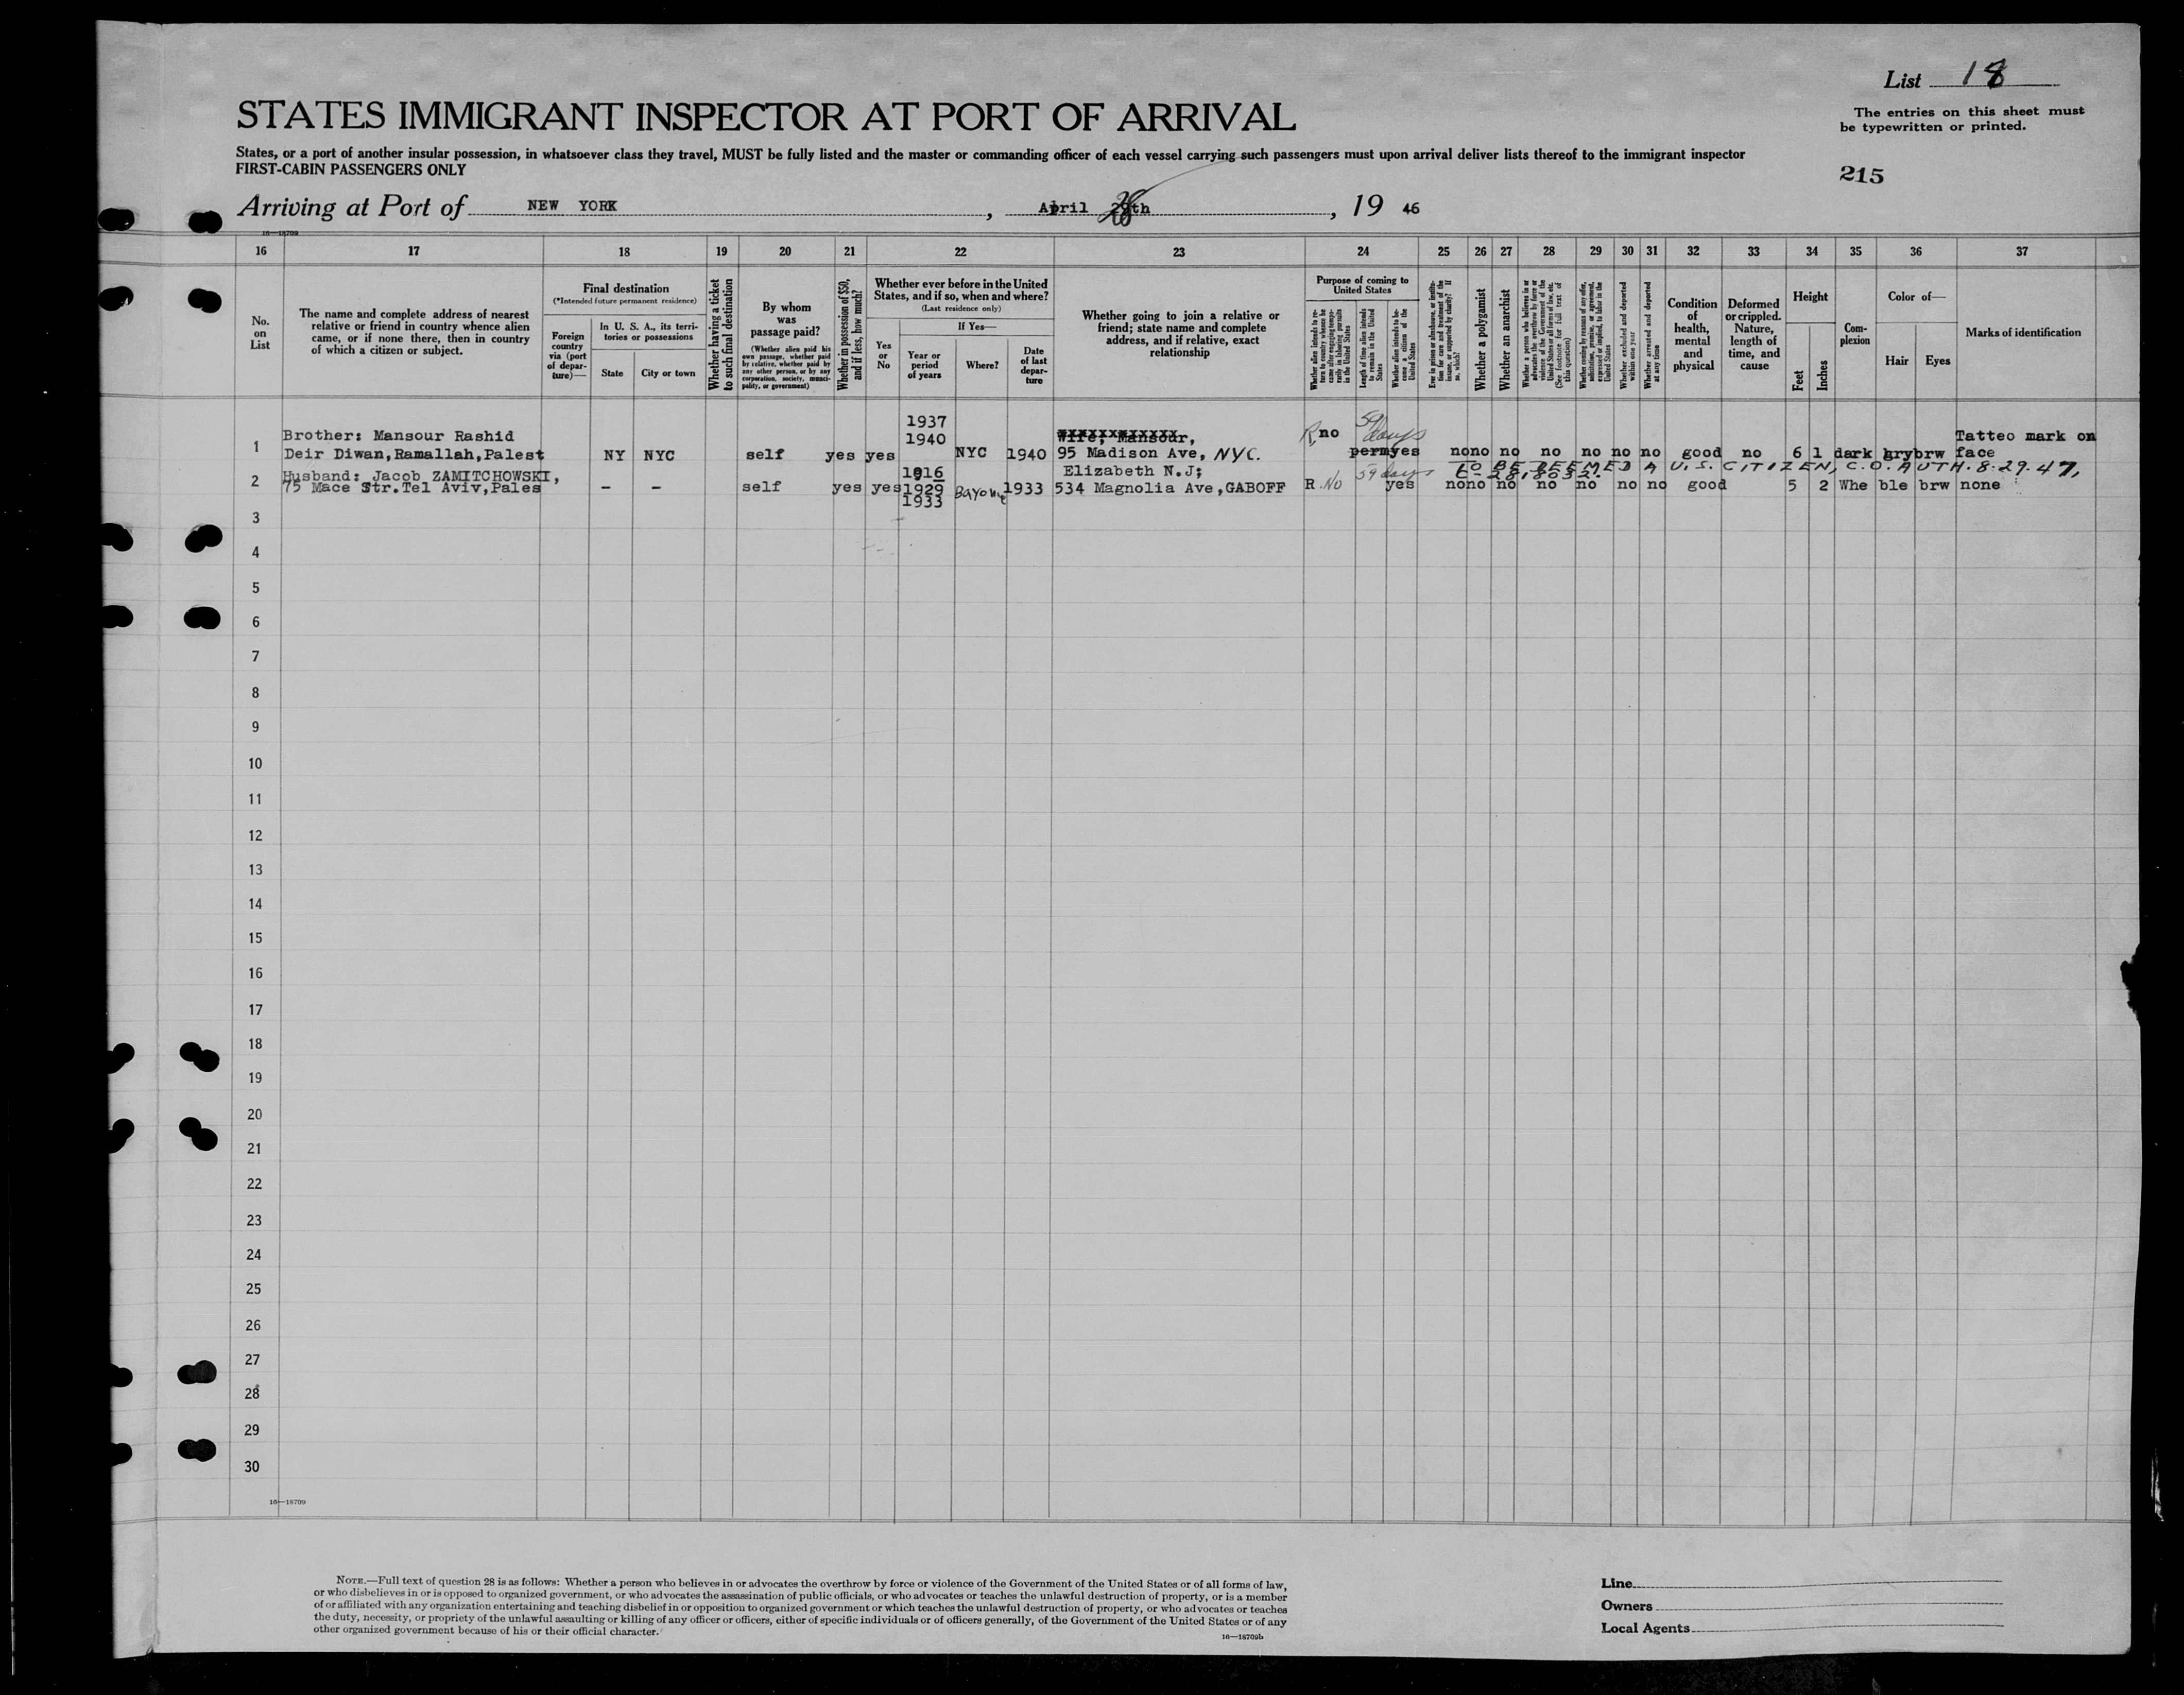 List 18
The entries on this sheet must
be typewritten or printed.
STATES IMMIGRANT INSPECTOR AT PORT OF ARRIVAL
States, or a port of another insular possession, in whatsoever class they travel, MUST be fully listed and the master or commanding officer of each vessel carrying such passengers must upon arrival deliver lists thereof to the immigrant inspector
FIRST-CABIN PASSENGERS ONLY
215
Arriving at Port of NEW YORK, April 28th, 19 46
16—18709
16 17 18 19 20 21 22 23 24 25 26 27 28 29 30 31 32 33 34 35 36 37
No. on List
The name and complete address of nearest
relative or friend in country whence alien
came, or if none there, then in country
of which a citizen or subject.
Final destination
(*Intended future permanent residence)
Foreign country via (port of departure)—
In U. S. A., its territories or possessions
State
City or town
Whether having a ticket to such final destination
By whom was passage paid?
(Whether alien paid his own passage, whether paid by relative, whether paid by any other person, or by any corporation, society, municipality, or government)
Whether in possession of $50, and if less, how much?
Whether ever before in the United
States, and if so, when and where?
(Last residence only)
Yes or No
If Yes—
Year or period of years
Where?
Date of last departure
Whether going to join a relative or
friend; state name and complete
address, and if relative, exact
relationship
Purpose of coming to United States
Whether alien intends to return to country whence he came after engaging temporarily in laboring pursuits in the United States
Length of time alien intends to remain in the United States
Whether alien intends to become a citizen of the United States
Ever in prison or almshouse, or institution for care and treatment of the insane, or supported by charity? If so, which?
Whether a polygamist
Whether an anarchist
Whether a person who believes in or advocates the overthrow by force or violence of the Government of the United States or all forms of law, etc. (See footnote for full text of this question)
Whether coming by reason of any offer, solicitation, promise, or agreement, expressed or implied, to labor in the United States
Whether excluded and deported within one year
Whether arrested and deported at any time
Condition of health, mental and physical
Deformed or crippled. Nature, length of time, and cause
Height
Feet
Inches
Complexion
Color of—
Hair
Eyes
Marks of identification
1 Brother: Mansour Rashid
Deir Diwan,Ramallah,Palest NY NYC self yes yes 1937 1940 NYC 1940 Wife; Mansour,
95 Madison Ave, NYC. R, no 59 days perm yes no no no no no no no good no 6 1 dark gry brw Tatteo mark on face
TO BE DEEMED A U.S. CITIZEN, C.O. AUTH. 8.29.47,
2 Husband: Jacob ZAMITCHOWSKI,
75 Mace Str.Tel Aviv,Pales - - self yes yes 1916 1929 1933 Bayonne 1933 Elizabeth N.J;
534 Magnolia Ave,GABOFF R No 59 days yes no no no no no no no good 5 2 Whe ble brw none
3
4
5
6
7
8
9
10
11
12
13
14
15
16
17
18
19
20
21
22
23
24
25
26
27
28
29
30
16—18709
NOTE.—Full text of question 28 is as follows: Whether a person who believes in or advocates the overthrow by force or violence of the Government of the United States or of all forms of law,
or who disbelieves in or is opposed to organized government, or who advocates the assassination of public officials, or who advocates or teaches the unlawful destruction of property, or is a member
of or affiliated with any organization entertaining and teaching disbelief in or opposition to organized government or which teaches the unlawful destruction of property, or who advocates or teaches
the duty, necessity, or propriety of the unlawful assaulting or killing of any officer or officers, either of specific individuals or of officers generally, of the Government of the United States or of any
other organized government because of his or their official character.
16—18709b
Line
Owners
Local Agents